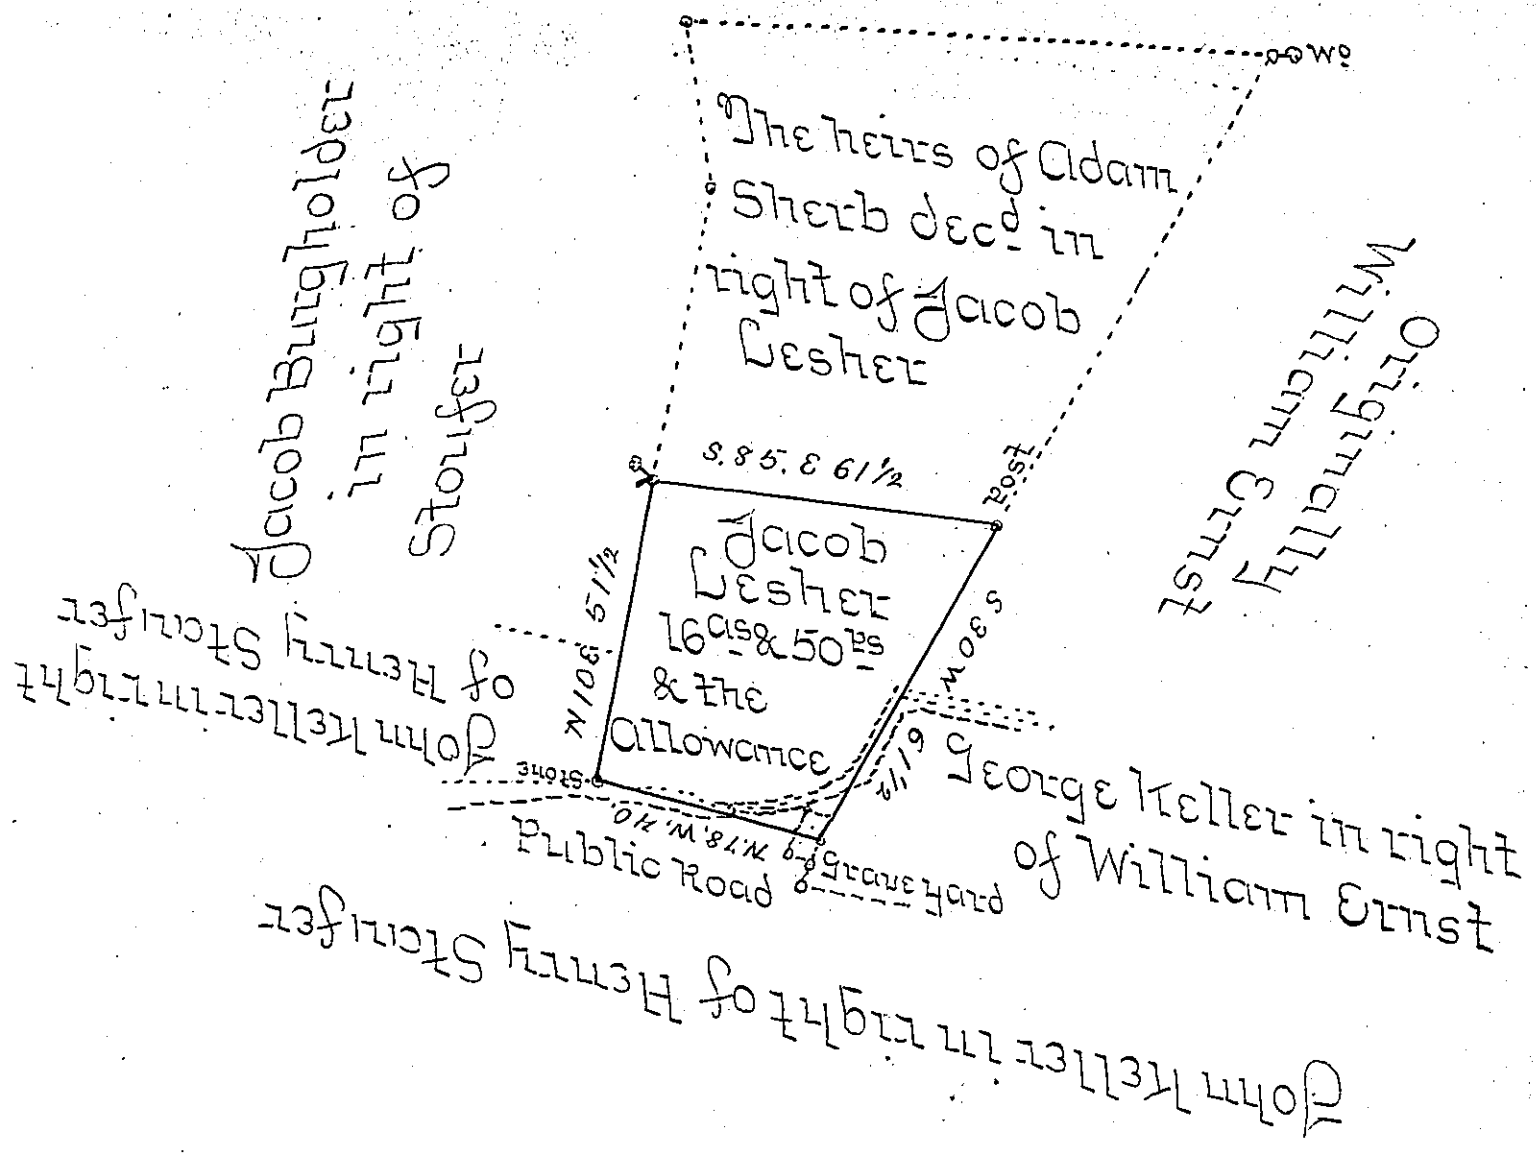 Wo
The heirs of Adam
Sherb decd in
right of Jacob
Lesher
Jacob Burgholder
in right of
Stoufer
Originally
William Ernst
S. 85. E 61 1/2
Post
Jacob
Lesher
16as & 50ps
& the
Allowance
N 10 E 51 1/2
S 30 W
61 1/2
John Keller in right
of Henry Stoufer
Stone
N. 78. W. 40
Public Road
Grave Yard
George Keller in right
of William Ernst
John Keller in right of Henry Staufer